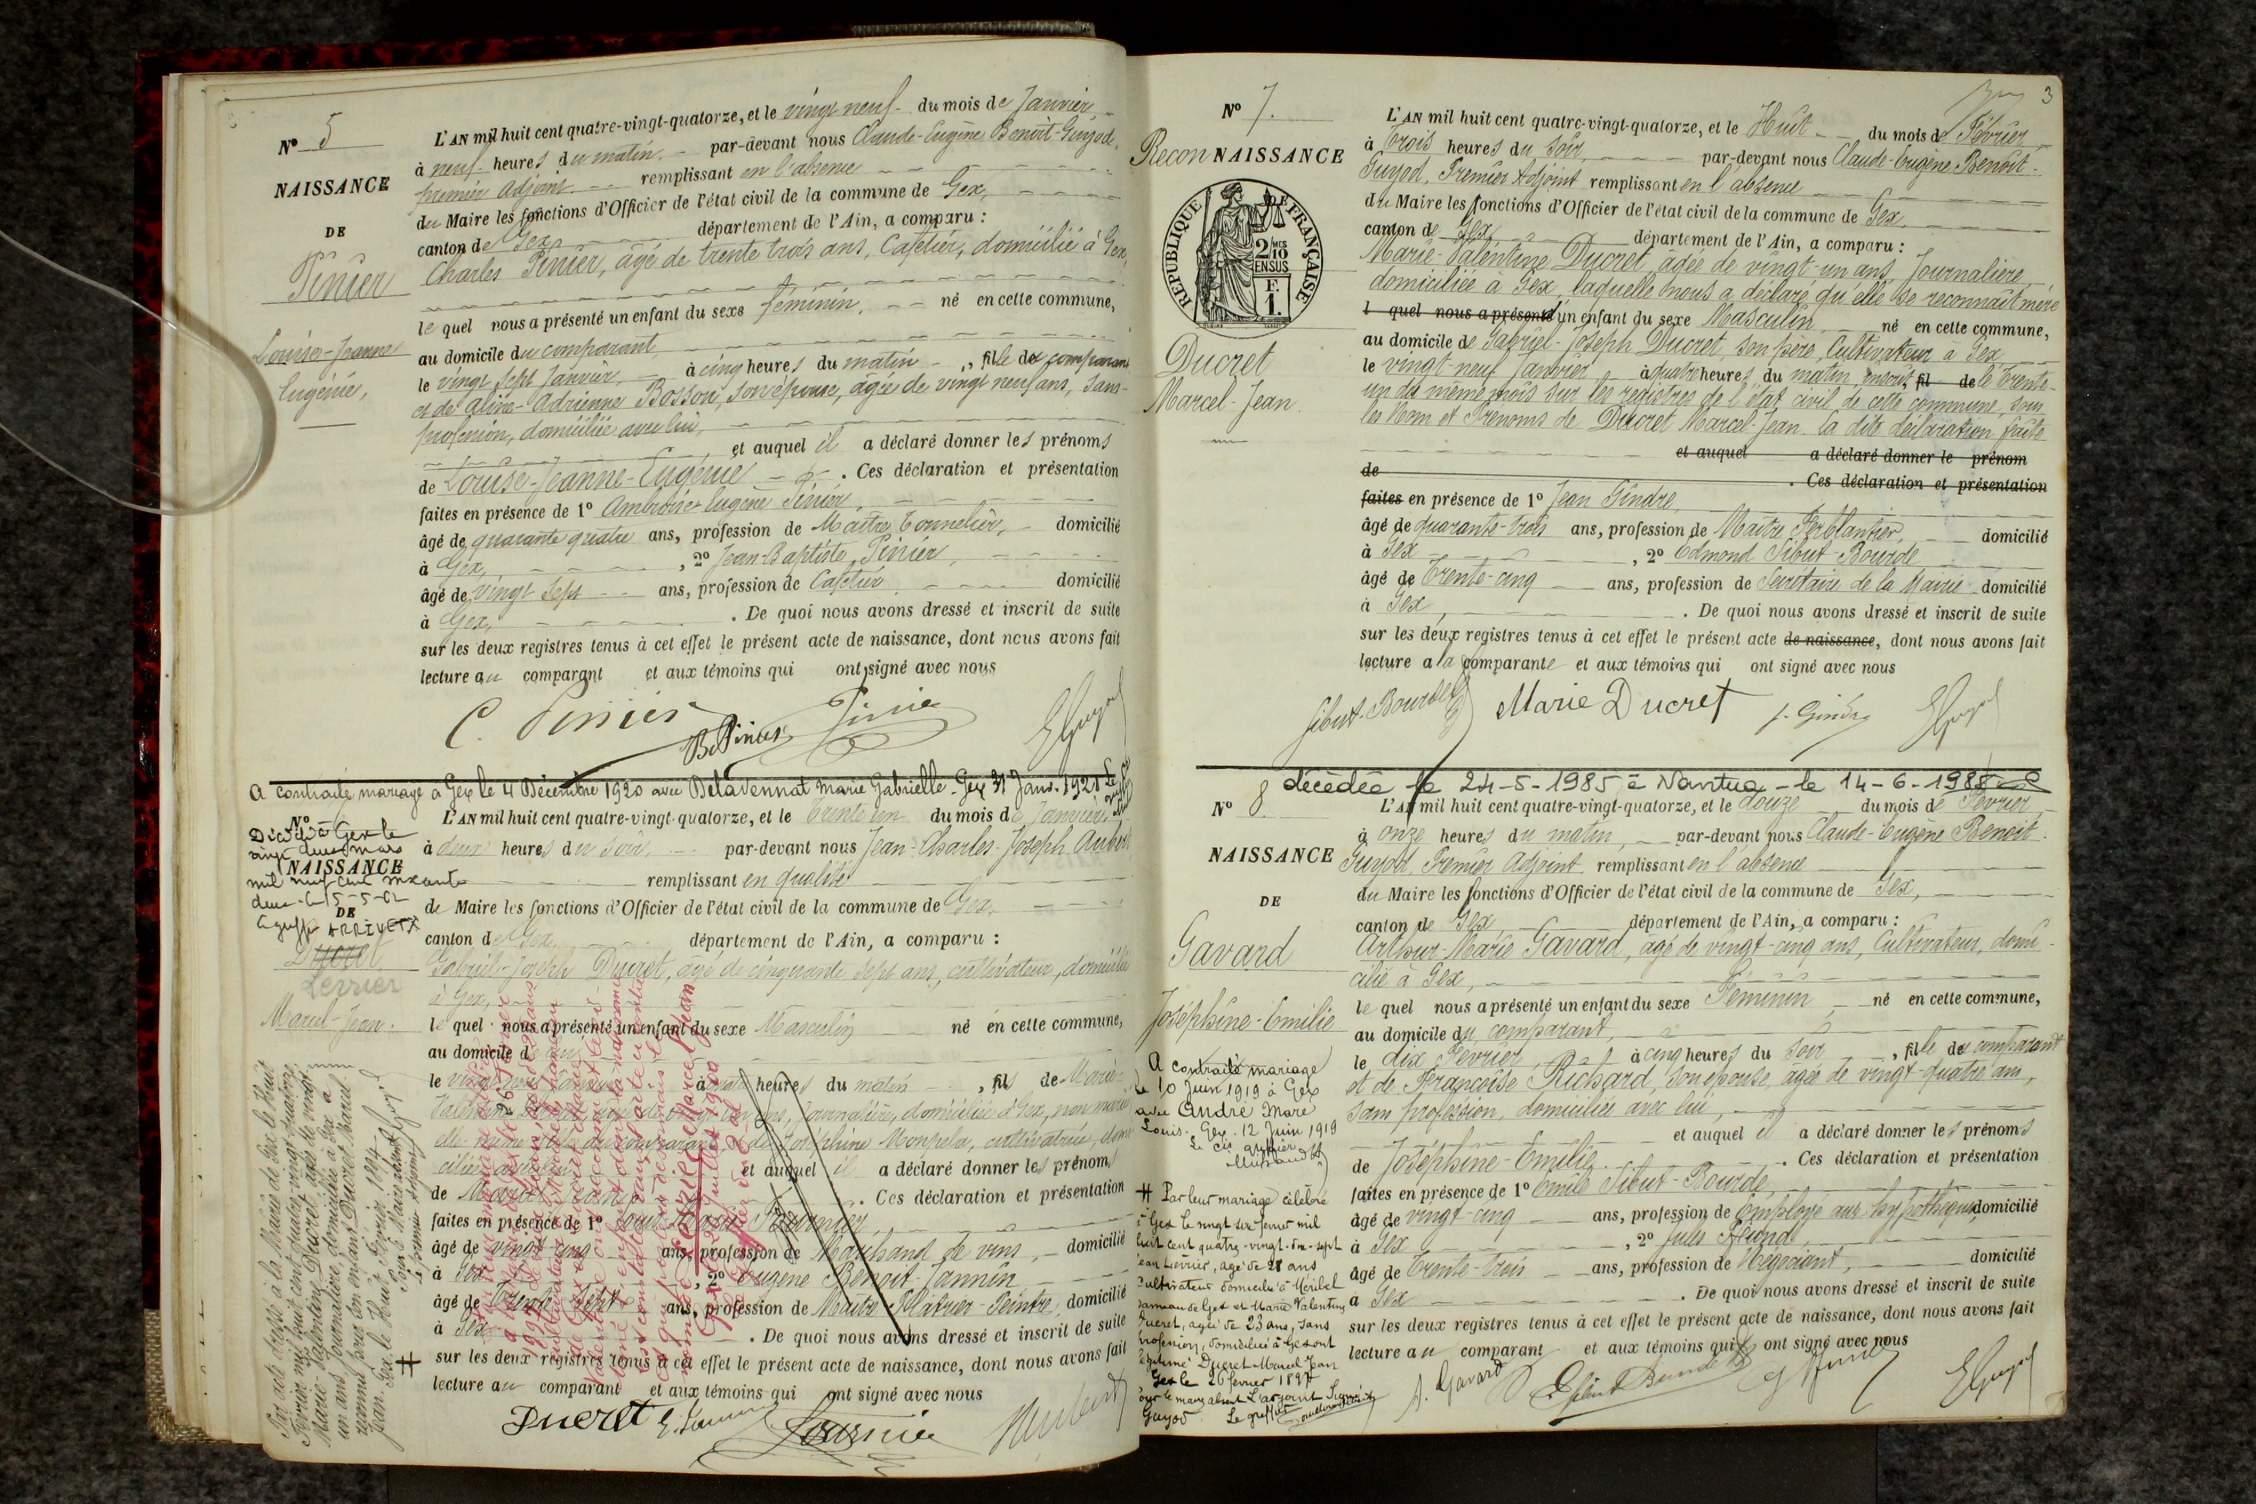 Nº 5
NAISSANCE
DE
Pinier
Louise-Jeanne
Eugénie,
L'AN mil huit cent quatre-vingt-quatorze, et le vingt neuf du mois de Janvier
à neuf heures du matin par-devant nous Claude-Eugène Benoit-Guyod,
premier adjoint remplissant en l'absence
du Maire les fonctions d'Officier de l'état civil de la commune de Gex,
canton de Gex département de l'Ain, a comparu :
Charles Pinier, âgé de trente trois ans, Cafetier, domicilié à Gex,
le quel nous a présenté un enfant du sexe féminin, né en cette commune,
au domicile du comparant,
le vingt sept Janvier, à cinq heures du matin, fille du comparant
et de Aline-Adrienne Bosson, son épouse, âgée de vingt neuf ans, sans
profession, domiciliée avec lui,
et auquel il a déclaré donner les prénoms
de Louise-Jeanne-Eugénie. Ces déclaration et présentation
faites en présence de 1º Ambroise Eugène Pinier,
âgé de quarante quatre ans, profession de Maître Tonnelier, domicilié
à Gex, , 2º Jean-Baptiste Pinier,
âgé de vingt sept ans, profession de Cafetier domicilié
à Gex, . De quoi nous avons dressé et inscrit de suite
sur les deux registres tenus à cet effet le présent acte de naissance, dont nous avons fait
lecture au comparant et aux témoins qui ont signé avec nous
C. Pinier
B. Pinier Pinier EGuyod
A contracté mariage à Gex le 4 Décembre 1920 avec Delavennat Marie Gabrielle. Gex 31 Janv. 1921
Nº
Décédé à Gex le
vingt deux mars
NAISSANCE
mil neuf cent soixante
deux 15-5-62
DE
Le greffier ARRIVETX
Ducret
Levrier
Marcel-Jean.
L'AN mil huit cent quatre-vingt-quatorze, et le Trente un du mois de Janvier
à deux heures du Soir, par-devant nous Jean-Charles-Joseph Aubert
remplissant en qualité
de Maire les fonctions d'Officier de l'état civil de la commune de Gex,
canton de Gex, département de l'Ain, a comparu :
Gabriel-Joseph Ducret, âgé de cinquante sept ans, cultivateur, domicilié
à Gex,
le quel nous a présenté un enfant du sexe Masculin né en cette commune,
au domicile de lui
le vingt neuf Janvier à quatre heures du matin, fils de Marie-
Valentine Ducret, âgée de vingt un ans, Journalière, domiciliée à Gex, non mariée
elle-même fille du comparant et de Joséphine Monpela, cultivatrice, domi
ciliée avec lui
et auquel il a déclaré donner les prénoms
de Marcel Jean. Ces déclaration et présentation
faites en présence de 1º Louis Fournier
âgé de vingt-cinq ans, profession de Marchand de vins, domicilié
à Gex , 2º Eugène Benoit-Jannin
âgé de Trente Sept ans, profession de Maître Plâtrier-Peintre, domicilié
à Gex . De quoi nous avons dressé et inscrit de suite
sur les deux registres tenus à cet effet le présent acte de naissance, dont nous avons fait
lecture au comparant et aux témoins qui ont signé avec nous
Ducret Fournier Aubert
Par acte dressé à la Mairie de Gex le Huit
Février mil huit cent quatre-vingt-quatorze,
Marie-Valentine Ducret âgée de vingt-
un ans, Journalière, domiciliée à Gex a
reconnu pour son enfant Ducret Marcel
Jean. Gex le Huit Février 1894.
Pour le Maire absent
le premier adjoint EGuyod
Levrier Marcel Jean
Gex le 29 Juillet 1920
3
Nº 7.
Recon NAISSANCE
RÉPUBLIQUE FRANÇAISE
2 MES
10
EN SUS
F.
1.
Ducret
Marcel-Jean.
L'AN mil huit cent quatre-vingt-quatorze, et le Huit du mois de Février
à Trois heures du Soir, par-devant nous Claude-Eugène Benoit-
Guyod, Premier Adjoint remplissant en l'absence
du Maire les fonctions d'Officier de l'état civil de la commune de Gex,
canton de Gex, département de l'Ain, a comparu :
Marie-Valentine Ducret, âgée de vingt-un ans, Journalière
domiciliée à Gex, laquelle nous a déclaré qu'elle se reconnaît mère
l quel nous a présenté d'un enfant du sexe Masculin, né en cette commune,
au domicile de Gabriel-Joseph Ducret, son père, Cultivateur à Gex
le vingt-neuf Janvier à quatre heures du matin, inscrit, fil de le Trente-
un du même mois sur les registres de l'état civil de cette commune, sous
les Nom et Prénoms de Ducret Marcel-Jean. La dite déclaration faite
et auquel a déclaré donner le prénom
de . Ces déclaration et présentation
faites en présence de 1º Jean Gindre,
âgé de quarante-trois ans, profession de Maître Ferblantier, domicilié
à Gex , 2º Edmond Sibut-Bourde
âgé de Trente-cinq ans, profession de Secrétaire de la Mairie domicilié
à Gex, . De quoi nous avons dressé et inscrit de suite
sur les deux registres tenus à cet effet le présent acte de naissance, dont nous avons fait
lecture a la comparante et aux témoins qui ont signé avec nous
Sibut-Bourde Marie Ducret J. Gindre EGuyod
décédée le 24-5-1985 à Nantua - le 14-6-1985
Nº 8.
NAISSANCE
DE
Gavard
Joséphine-Emilie
A contracté mariage
le 10 Juin 1919 à Gex
avec André Marc
Louis. Gex. 12 Juin 1919
Le cis greffier
# Par leur mariage célébré
à Gex le vingt six février mil
huit cent quatre-vingt-dix-sept
Jean Levrier, âgé de 28 ans
Cultivateur domicilié à Méribel
hameau de Gex et Marie Valentine
Ducret, âgée de 23 ans, sans
profession, domiciliée à Gex ont
légitimé Ducret Marcel Jean
Gex le 26 février 1897
Pour le maire absent L'adjoint Signé:
Guyod. Le greffier
L'AN mil huit cent quatre-vingt-quatorze, et le douze du mois de Février
à onze heures du matin, par-devant nous Claude-Eugène Benoit-
Guyod, Premier Adjoint remplissant en l'absence
du Maire les fonctions d'Officier de l'état civil de la commune de Gex,
canton de Gex département de l'Ain, a comparu :
Arthur-Marie Gavard, âgé de vingt-cinq ans, Cultivateur, domi-
cilié à Gex,
le quel nous a présenté un enfant du sexe Féminin, né en cette commune,
au domicile du comparant,
le dix Février, à cinq heures du Soir, fille du comparant
et de Françoise Richard, son épouse, âgée de vingt-quatre ans,
sans profession, domiciliée avec lui,
et auquel il a déclaré donner les prénoms
de Joséphine-Emilie. . Ces déclaration et présentation
faites en présence de 1º Emile Sibut-Bourde
âgé de vingt-cinq ans, profession de Employé aux hypothèques, domicilié
à Gex , 2º Jules
âgé de Trente-trois ans, profession de Négociant, domicilié
à Gex . De quoi nous avons dressé et inscrit de suite
sur les deux registres tenus à cet effet le présent acte de naissance, dont nous avons fait
lecture au comparant et aux témoins qui ont signé avec nous
A. Gavard E Sibut Bourde EGuyod